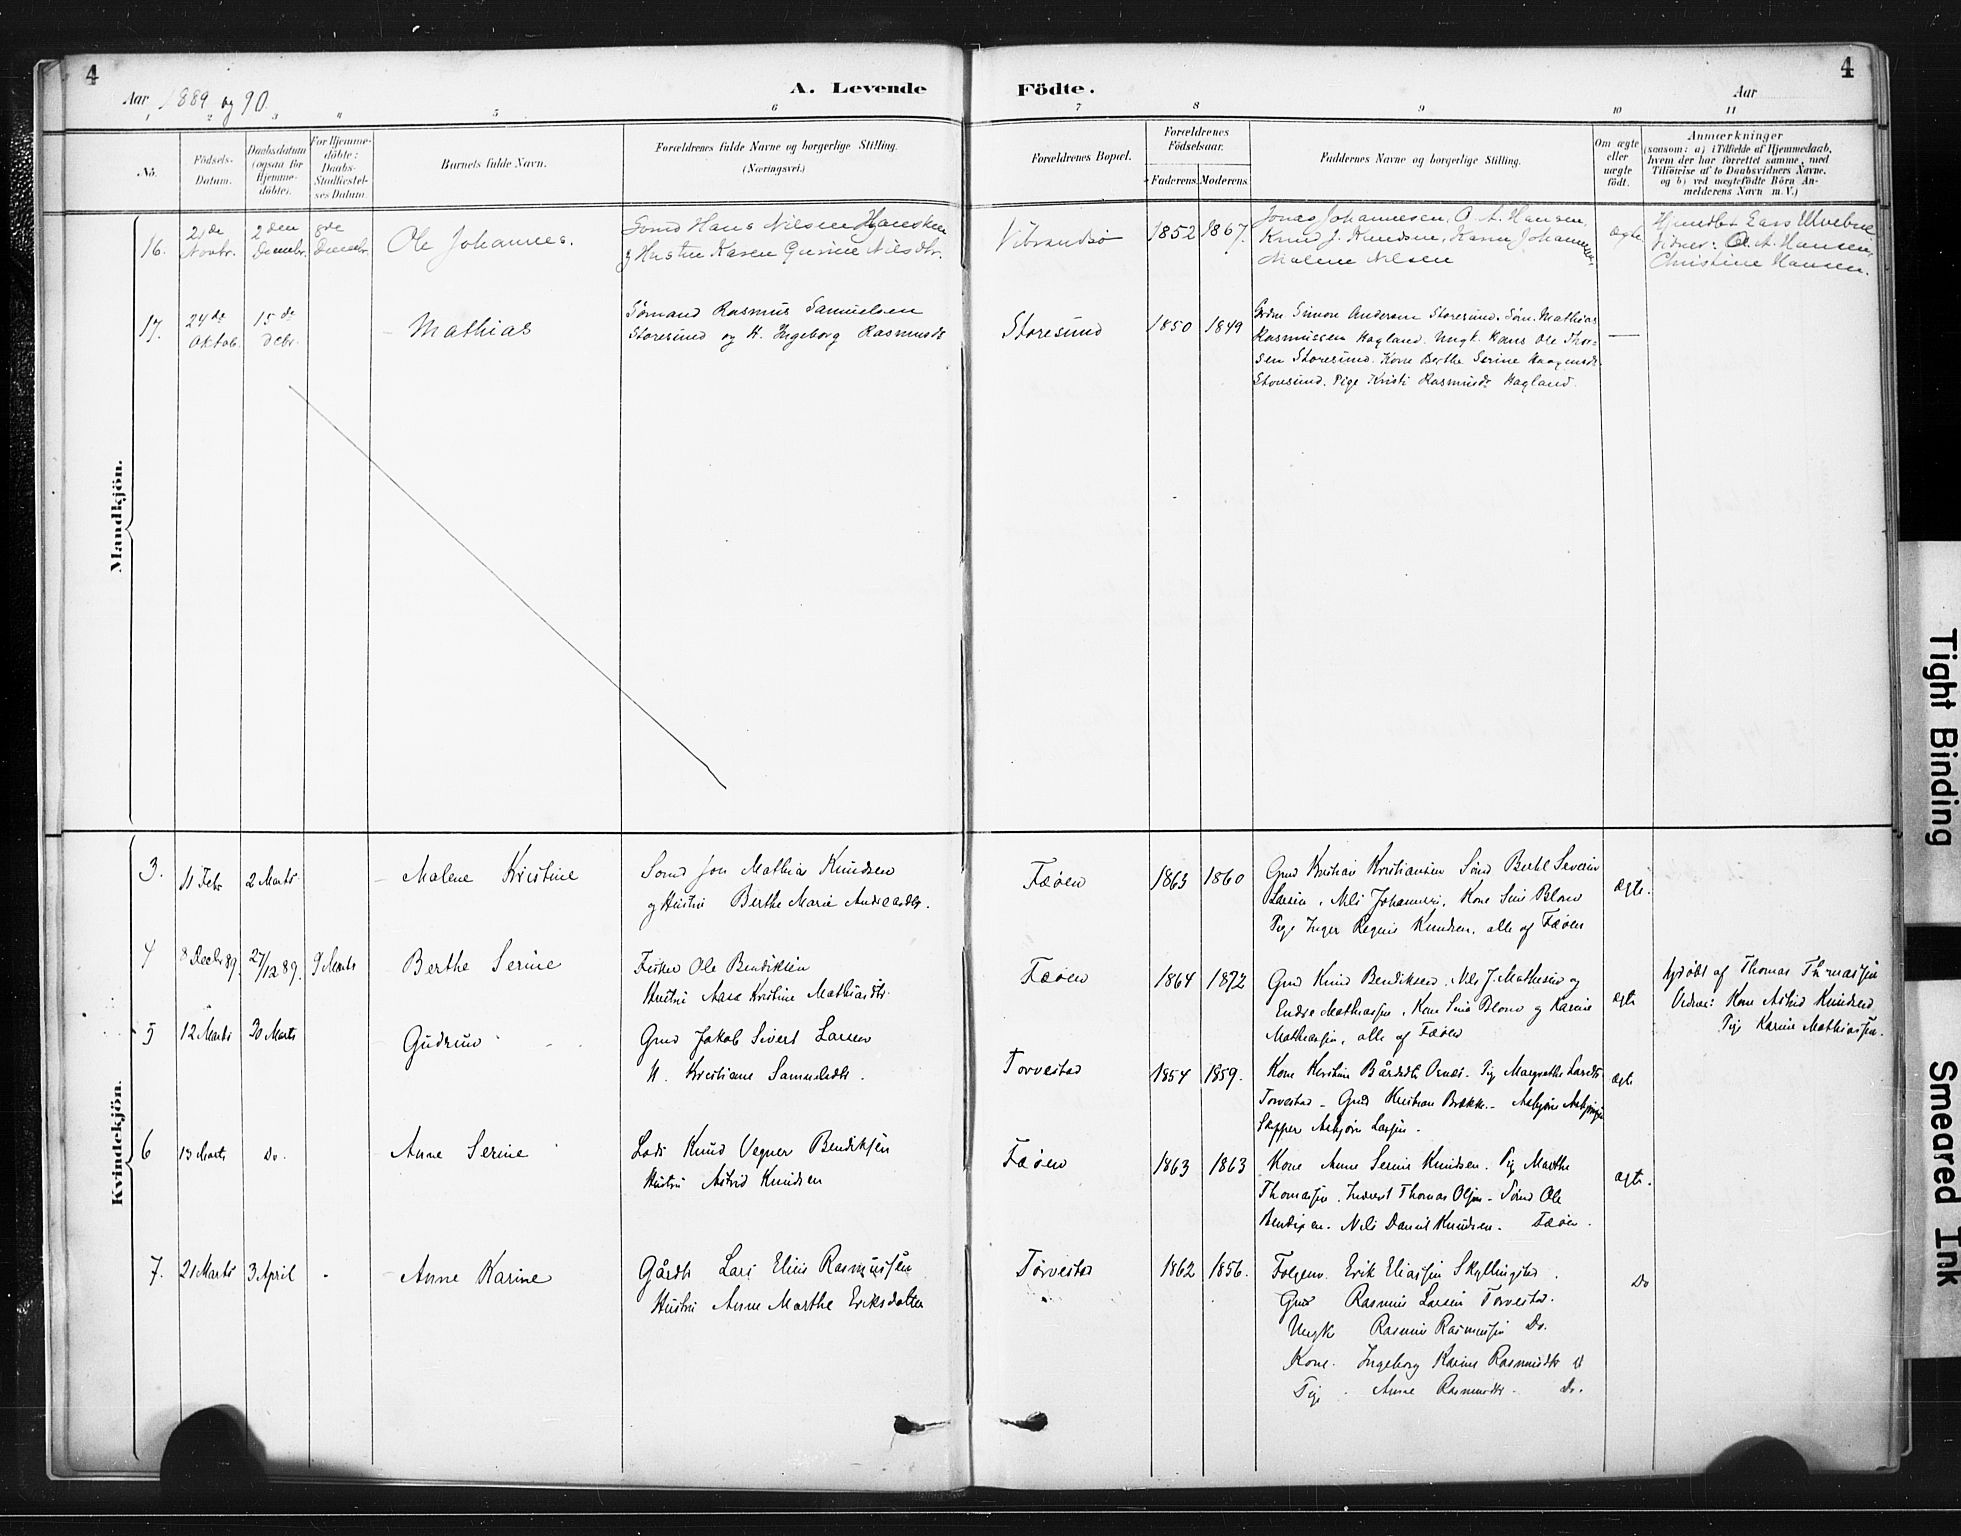 4
Aar 1889 og 90.
A. Levende Födte.
Aar
4
1 2 3 4 5 6 7 8 9 10 11
No.
Födsels-
Datum.
Daabsdatum
(ogsaa for
Hjemme-
döbte).
For Hjemme-
döbte:
Daabs-
Stadfæstel-
ses Datum.
Barnets fulde Navn.
Forældrenes fulde Navne og borgerlige Stilling.
(Næringsvei.)
Forældrenes Bopæl.
Forældrenes
Födselsaar.
Faderens. Moderens.
Faddernes Navne og borgerlige Stilling.
Om ægte
eller
uægte
födt.
Anmærkninger
(saasom: a) i Tilfælde af Hjemmedaab,
hvem der har forrettet samme, med
Tilföielse af to Daabsvidners Navne.
og b) ved uægtefödte Börn An-
melderens Navn m. V.)
Mandkjön.
16.
21de
Novbr.
2den
Decmbr.
8de
Decmbr.
Ole Johannes.
Sømd Hans Nilsen
& Hustru Karen Gurine Nilsdtr.
Vibrandsø
1852 1867.
Jonas Johannesen, O. A. Hansen,
Knud J. Knudsen, Karen
Malene Nilsen
ægte
Hjmdbt Lars
Vidner: O. A. Hansen,
Christine Hansen.
17.
24de
Oktob.
15de
Debr.
Mathias
Sømand Rasmus Samuelsen
Storesund og H. Ingeborg Rasmusdtr
Storesund
1850 1849
Simon Andersen Storesund. Søm. Mathias
Rasmussen Hagland. Ungk. Hans Ole Thor-
sen Storesund. Kone Berthe Serine Haagensdtr
Storesund. Pige Kristi Rasmusdtr Hagland.
—
Kvindekjön.
3.
11 Febr
2 Marts
Malene Kristine
Sømd Jon Mathias Knudsen
og Hustru Berthe Marie Andreasdtr.
Fæøen
1863 1860
Gmd Kristian Kristiansen Sömd Bertel Severin
Larsen, Nils Johannes, Kone Sine Blom
Pige Inger Regine Knudsen, alle af Fæøen
ægte.
4
8 Decbr 89.
27/12 89.
9 Marts
Berthe Serine
Fisker Ole Bendiksen
Hustru Aasa Kristine Mathiasdtr.
Fæøen
1864 1872
Gmd Knud Bendiksen, Nils J. Mathesen og
Endre Mathiassen, Kone Sine Blom og Karine
Mathiassen, alle af Fæøen
ægte
hjdöbt af Thomas Thomassen
Vidner: Kone Astrid Knudsen
Pige Karine Mathiassen.
5
12 Marts
30 Marts
Gudrun
Gmd Jakob Sivert Larsen
H. Kristiane Samueldtr.
Torvestad
1854 1859.
Kone Kirstine Bårdsdtr Osnes. Pig Margrethe Larsdtr
Torvestad - Gmd Kristian Brekke. - Asbjörn Asbjörnsen
Skipper Asbjörn Larsen.
ægte
6
13 Marts
Do.
Anne Serine
Lods Knud Vegner Bendiksen
Hustru Astrid Knudsen
Fæøen
1863 1863
Kone Anne Serine Knudsen. Pig Marthe
Thomassen. Inderst Thomas Olsen - Sömd Ole
Bendixen. Nils Daniel Knudsen. Fæøen.
ægte.
7.
21 Marts
3 April
Anne Karine
Gårdbr Lars Elius Rasmussen
Hustru Anne Marthe Eriksdatter
Torvestad
1862 1856.
Folgem. Erik Eliassen Skyllingstad.
Gmd Rasmus Larsen Torvestad.
Ungk Rasmus Rasmussen Do.
Kone. Ingeborg Karine Rasmusdtr D
Pige. Anne Rasmusdtr. Do.
Do
Tight Binding
Smeared Ink